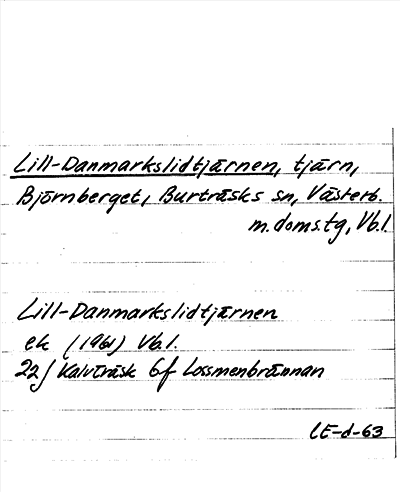 Lill-Danmarkslidtjärnen, tjärn,
Björnberget, Burträsks sn, Västerb.
m.doms.tg, Vb.l.
Lill-Danmarkslidtjärnen
ek (1961) Vb.l.
22J Kalvträsk 6f Lossmenbrännan
LE-d-63